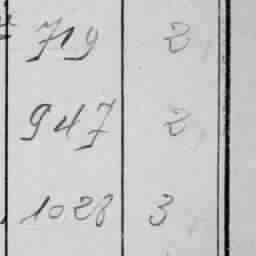 719 2
947 2
1028 3